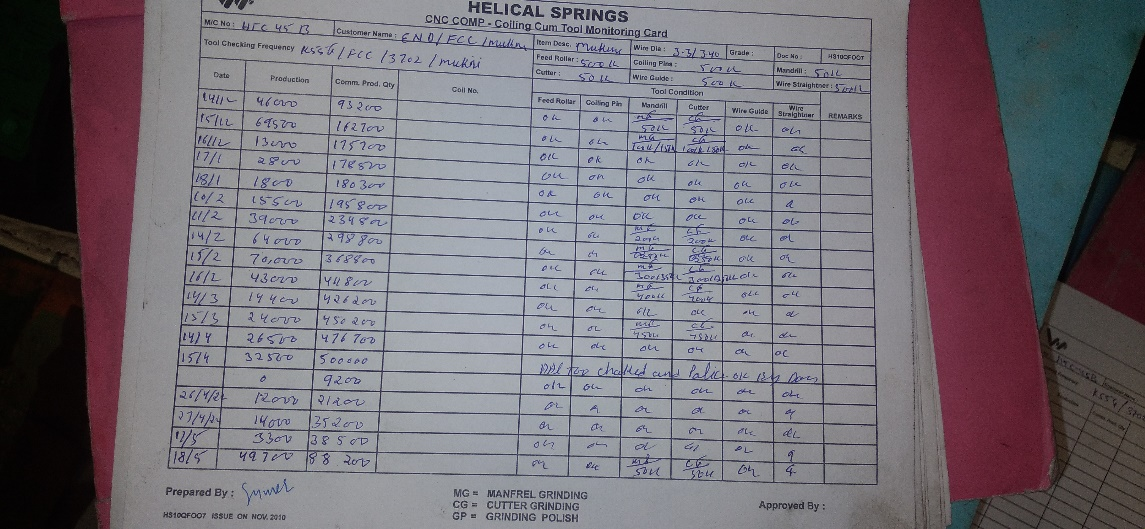 HELICAL SPRINGS
CNC COMP - Coiling Cum Tool Monitoring Card
M/C No : HFC 45 B Customer Name : END/FCC/mukni Item Desc. mukni Wire Dia : 3.3/3.40 Grade : Doc No : HS10QFO07
Tool Checking Frequency K556/FCC/3702/mukni Feed Roller : 500K Coiling Pins : 500K Mandrill : 50K
Cutter : 50K Wire Guide : 500K Wire Straightner : 500K
Date Production Comm. Prod. Qty Coil No. Tool Condition
Feed Rollar Coiling Pin Mandrill Cutter Wire Guide Wire Straightner REMARKS
14/12 46000 93200 ok ok MG 50K CG 50K ok ok
15/12 69500 162700 ok ok MG 100K/150K CG 100K/150K ok ok
16/12 13000 175700 ok ok ok ok ok ok
17/1 2800 178500 ok ok ok ok ok ok
18/1 1800 180300 ok ok ok ok ok
10/2 15500 195800 ok ok ok ok ok ok
11/2 39000 234800 ok ok MG 200K CG 200K ok ok
14/2 64000 298800 ok ok MG CG ok ok
15/2 70,000 368800 ok ok MG CG ok ok
16/2 43000 411800 ok ok MG 400K CG 400K ok ok
14/3 14400 426200 ok ok ok ok ok ok
15/3 24000 450200 ok ok MG 450K CG 450K ok ok
14/4 26500 476700 ok ok ok ok ok ok
15/4 32500 500000 and ok By
0 9200 ok ok ok ok ok ok
26/4/2 12000 21200 ok ok ok ok ok
27/4/2 14000 35200 ok ok ok ok ok ok
17/5 3300 38500 ok ok ok ok
18/5 49700 88200 ok ok MG 50K CG 50K ok
Prepared By :
MG = MANFREL GRINDING
CG = CUTTER GRINDING
GP = GRINDING POLISH
Approved By :
HS10QFO07 ISSUE ON NOV. 2010